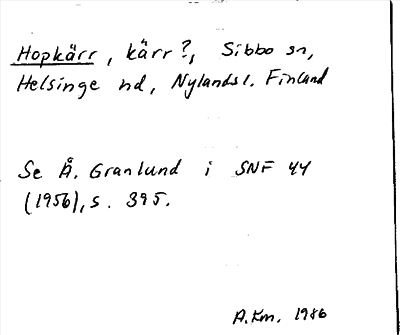 Hopkärr, kärr?, Sibbo sn,
Helsinge hd, Nylands l. Finland
Se Å. Granlund i SNF 44
(1956), s. 395.
A.Km. 1986